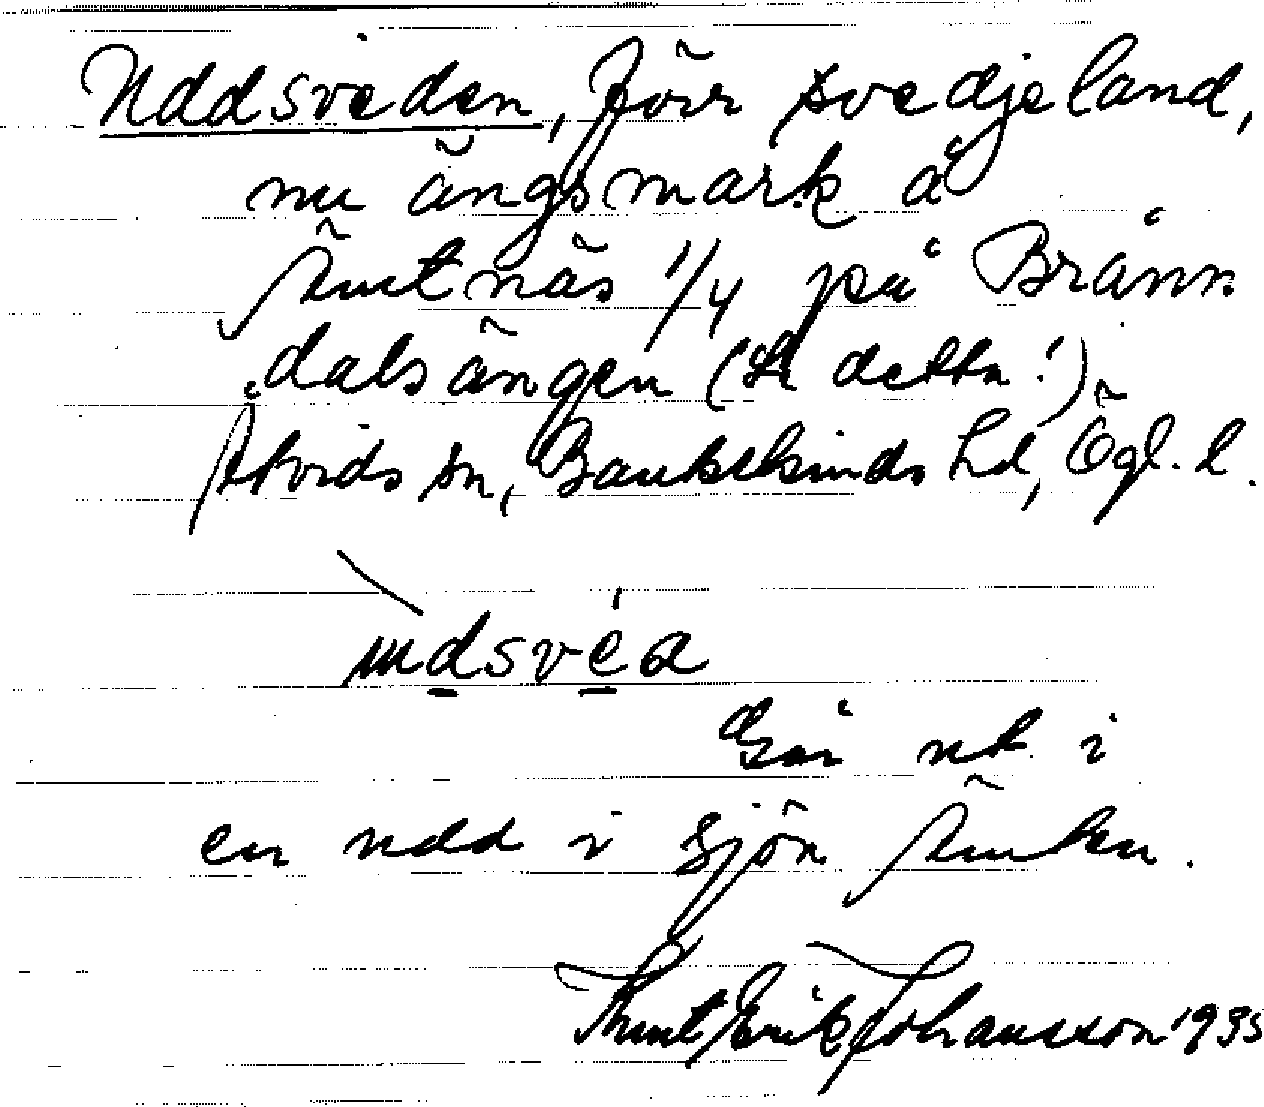 Uddsveden, förr svedjeland,
nu ängsmark å
Ämtnäs 1/4 på Bränn
dalsängen (se detta!)
Åtvids sn, Bankekinds hd, Ögl. l.
udsvéa
Går ut i
en udd i sjön Ämten.
Knut Erik Johansson 1935